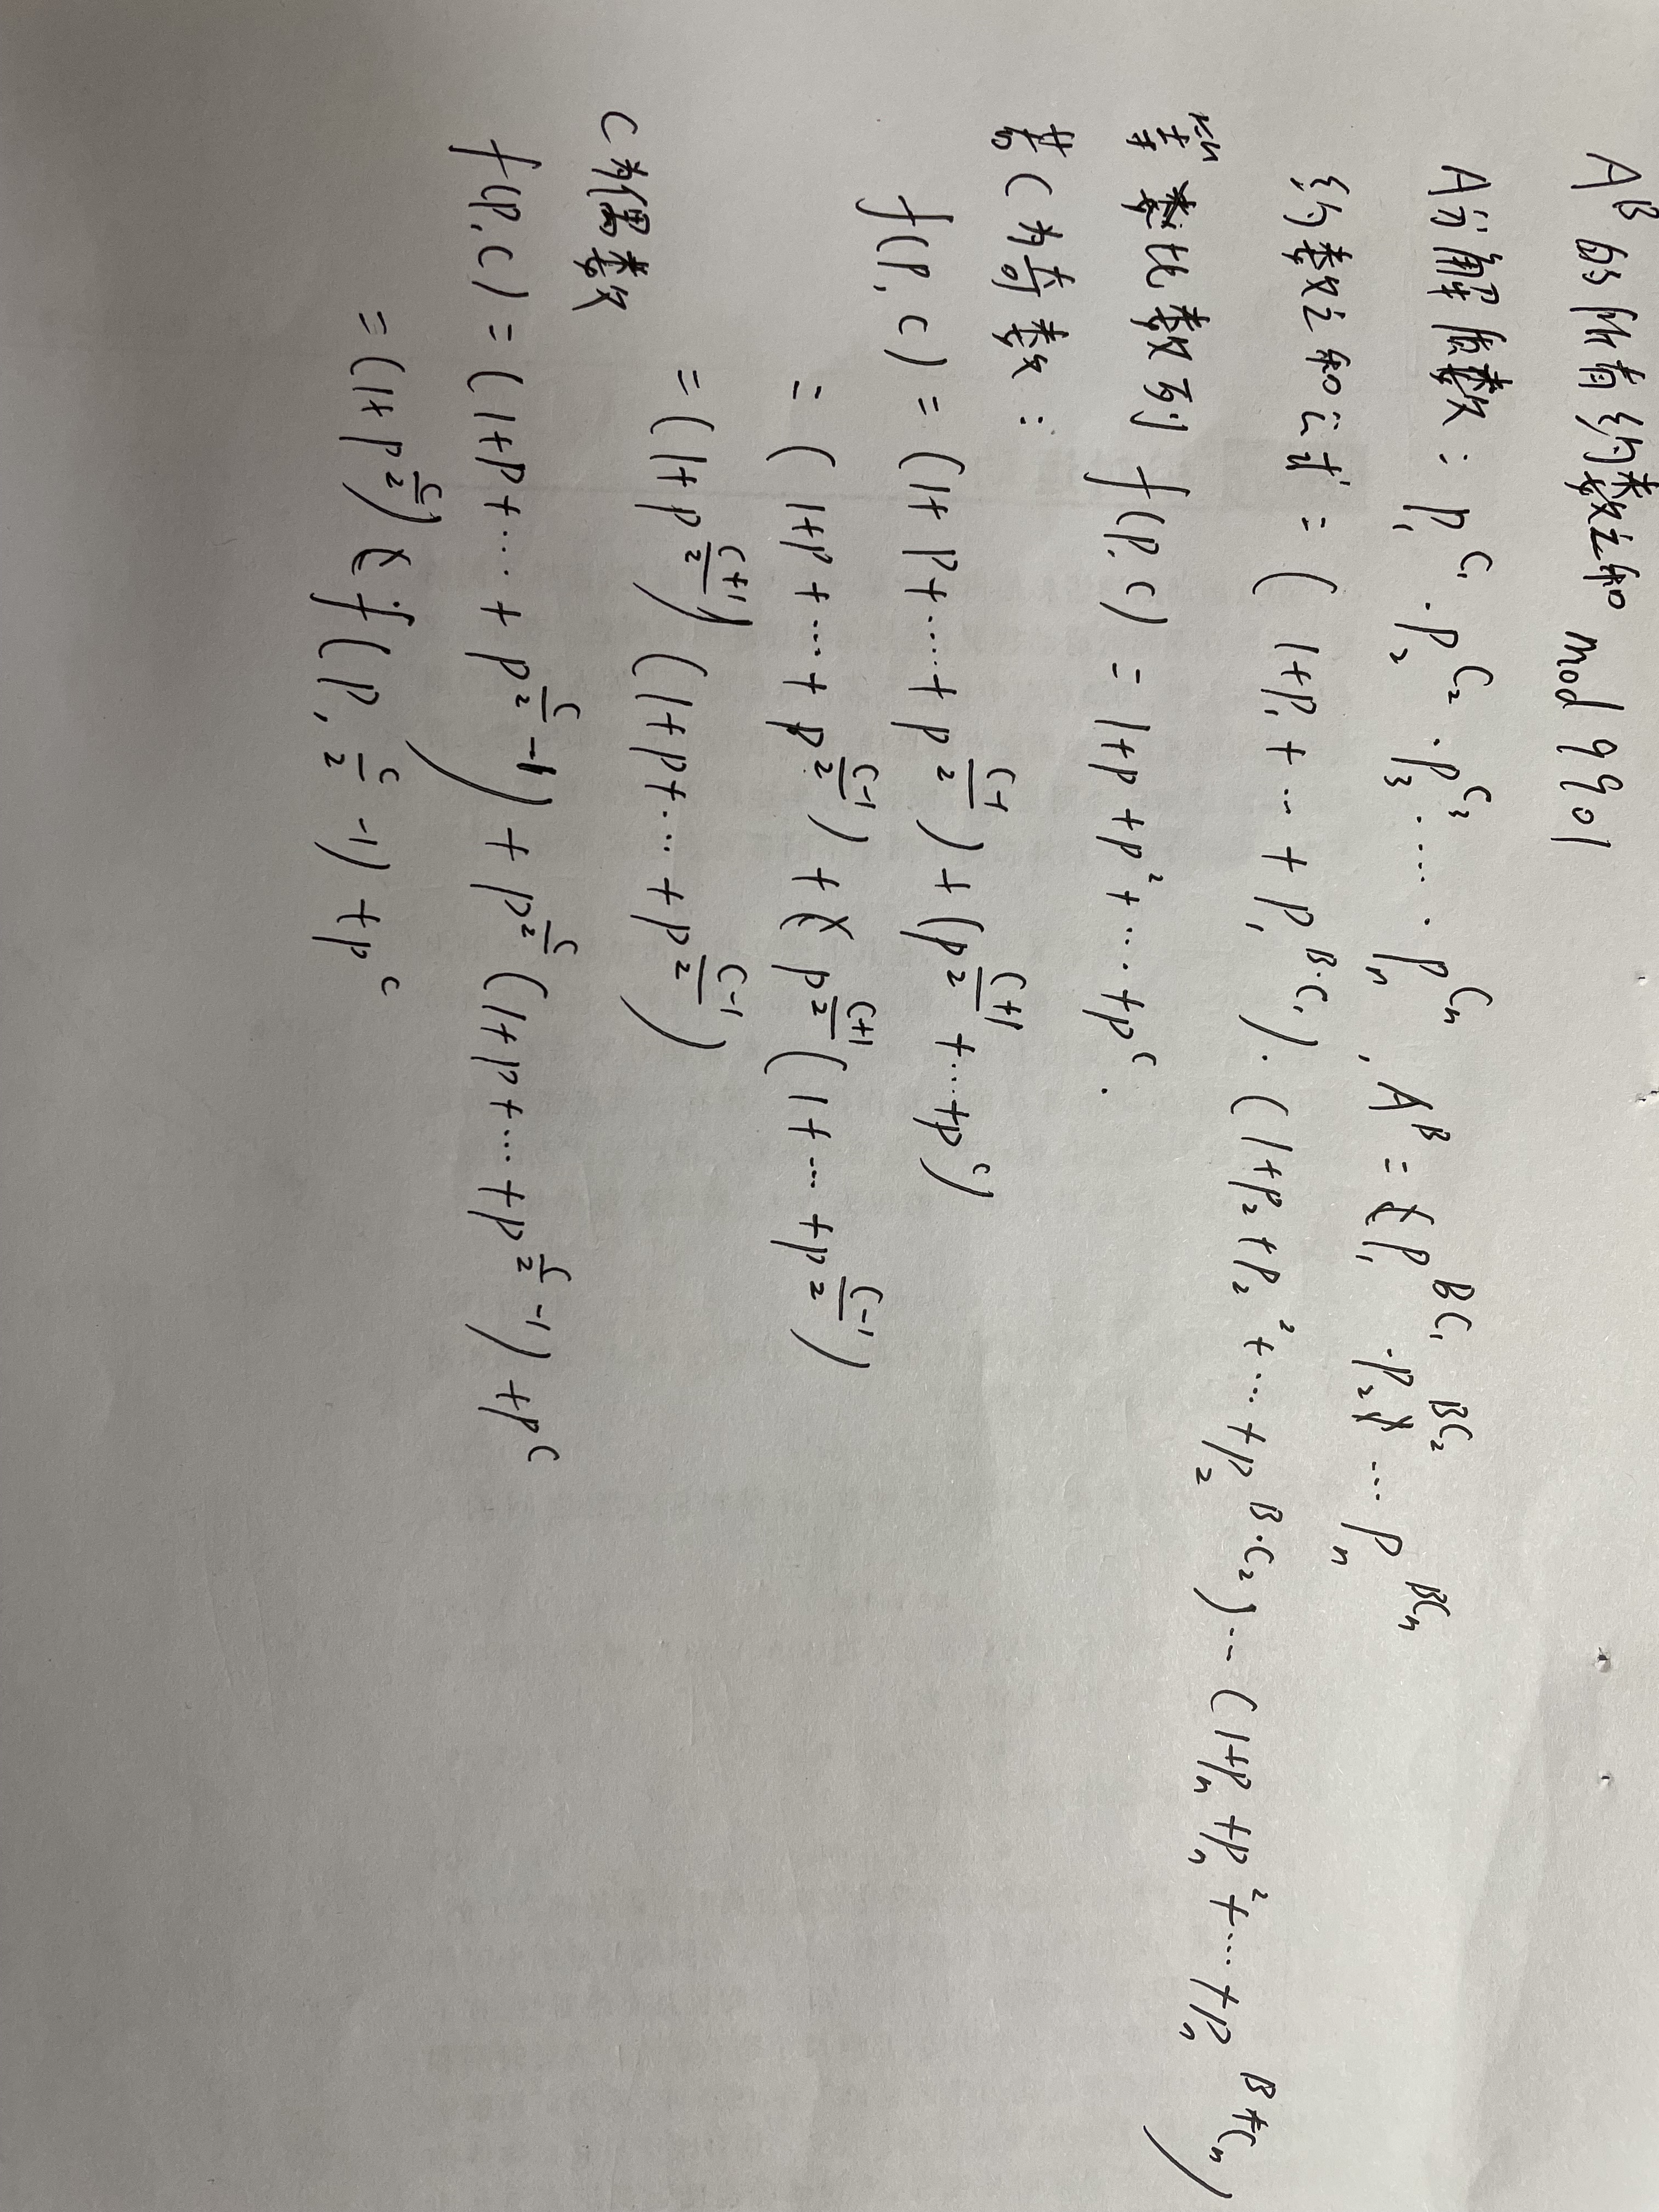 A^B 的所有约数之和 mod 9901
A分解质数: p₁^C₁ · p₂^C₂ · p₃^C₃ ····· pₙ^Cₙ, A^B = p₁^BC₁ · p₂^BC₂ ··· pₙ^BCₙ
约数之和公式 = (1+p₁+···+p₁^B·C₁)·(1+p₂+p₂²+···+p₂^B·C₂)···(1+pₙ+pₙ²+···+pₙ^B*Cₙ)
等比数列 f(p,c) = 1+p+p²+····+p^c.
若C为奇数:
f(p,c) = (1+p+····+p^((c-1)/2)) + (p^((c+1)/2)+···+p^c)
= (1+p+···+p^((c-1)/2)) + p^((c+1)/2)(1+···+p^((c-1)/2))
= (1+p^((c+1)/2))(1+p+···+p^((c-1)/2))
C为偶数
f(p,c) = (1+p+···+p^(c/2 -1)) + p^(c/2)(1+p+···+p^(c/2 -1)) + p^c
= (1+p^(c/2)) f(p, c/2 -1) + p^c